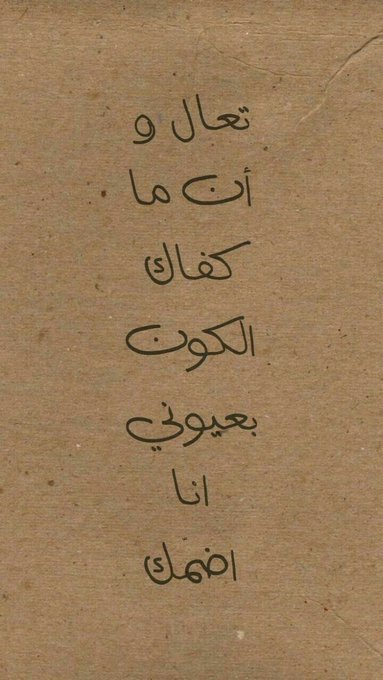 تعال و
أن ما
كفاك
الكون
بعيوني
انا
اضمّك